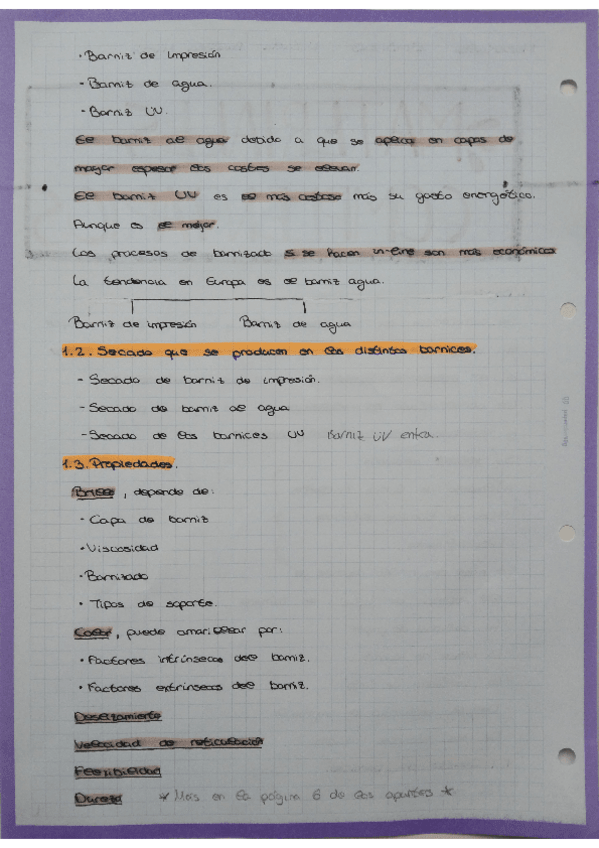 · Barniz de impresión
- Barniz de agua.
- Barniz UV.
El barniz al agua debido a que se aplica en capas de
mayor espesor los costes se elevan.
El barniz UV es el más costoso más su gasto energético.
Aunque es el mejor.
Los procesos de barnizado si se hacen in-line son más económicos
La tendencia en Europa es al barniz agua.
Barniz de impresión Barniz de agua
1.2. Secado que se producen en los distintos barnices.
- Secado de barniz de impresión.
- Secado de barniz al agua
- Secado de los barnices UV Barniz UV
1.3. Propiedades.
Brillo, depende de:
· Capa de barniz
· Viscosidad
· Barnizado
· Tipos de soporte.
Color, puede amarillear por:
· Factores intrínsecos del barniz.
· Factores extrínsecos del barniz.
Deslizamiento
Velocidad de reticulación
Flexibilidad
Dureza * Más en la página 6 de los apuntes *